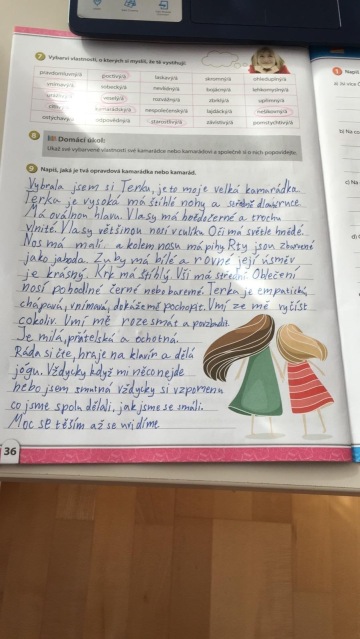 7 Vybarvi vlastnosti, o kterých si myslíš, že tě vystihují.
pravdomluvný/á poctivý/á laskavý/á skromný/á ohleduplný/á
vnímavý/á sobecký/á nevlídný/á bojácný/á lehkomyslný/á
veselý/á rozvážný/á zbrklý/á upřímný/á
kamarádský/á nespolečenský/á lajdácký/á nešikovný/á
ostýchavý/á odpovědný/á starostlivý/á závistivý/á pomstychtivý/á
8 Domácí úkol:
Ukaž své vybarvené vlastnosti své kamarádce nebo kamarádovi a společně si o nich popovídejte.
9 Napiš, jaká je tvá opravdová kamarádka nebo kamarád.
Vybrala jsem si Terku, je to moje velká kamarádka.
Terka je vysoká má štíhlé nohy a dlouhé ruce
Má oválnou hlavu. Vlasy má hnědočerné a trochu
vlnité. Vlasy většinou nosí v culíku. Oči má světle hnědé.
Nos má malí a kolem nosu má pihy. Rty jsou
jako jahoda. Zuby má bílé a rovné její úsměv
je krásný. Krk má štíhlý. Uši má střední. Oblečení
nosí pohodlné černé nebo barevné. Terka je empatická,
chápavá, vnímavá, dokáže mě pochopit. Umí ze mě vyčíst
cokoliv. Umí mě rozesmát a povzbudit.
Je milá, přátelská a ochotná.
Ráda si čte, hraje na klavír a dělá
jógu. Vždycky když mi něco nejde
nebo jsem smutná vždycky si vzpomenu
co jsme spolu dělali, jak jsme se smáli.
Moc se těším až se uvidíme
36
1 Napiš